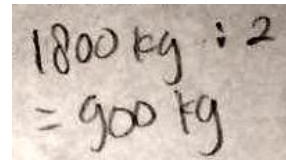 1800 kg : 2
= 900 kg